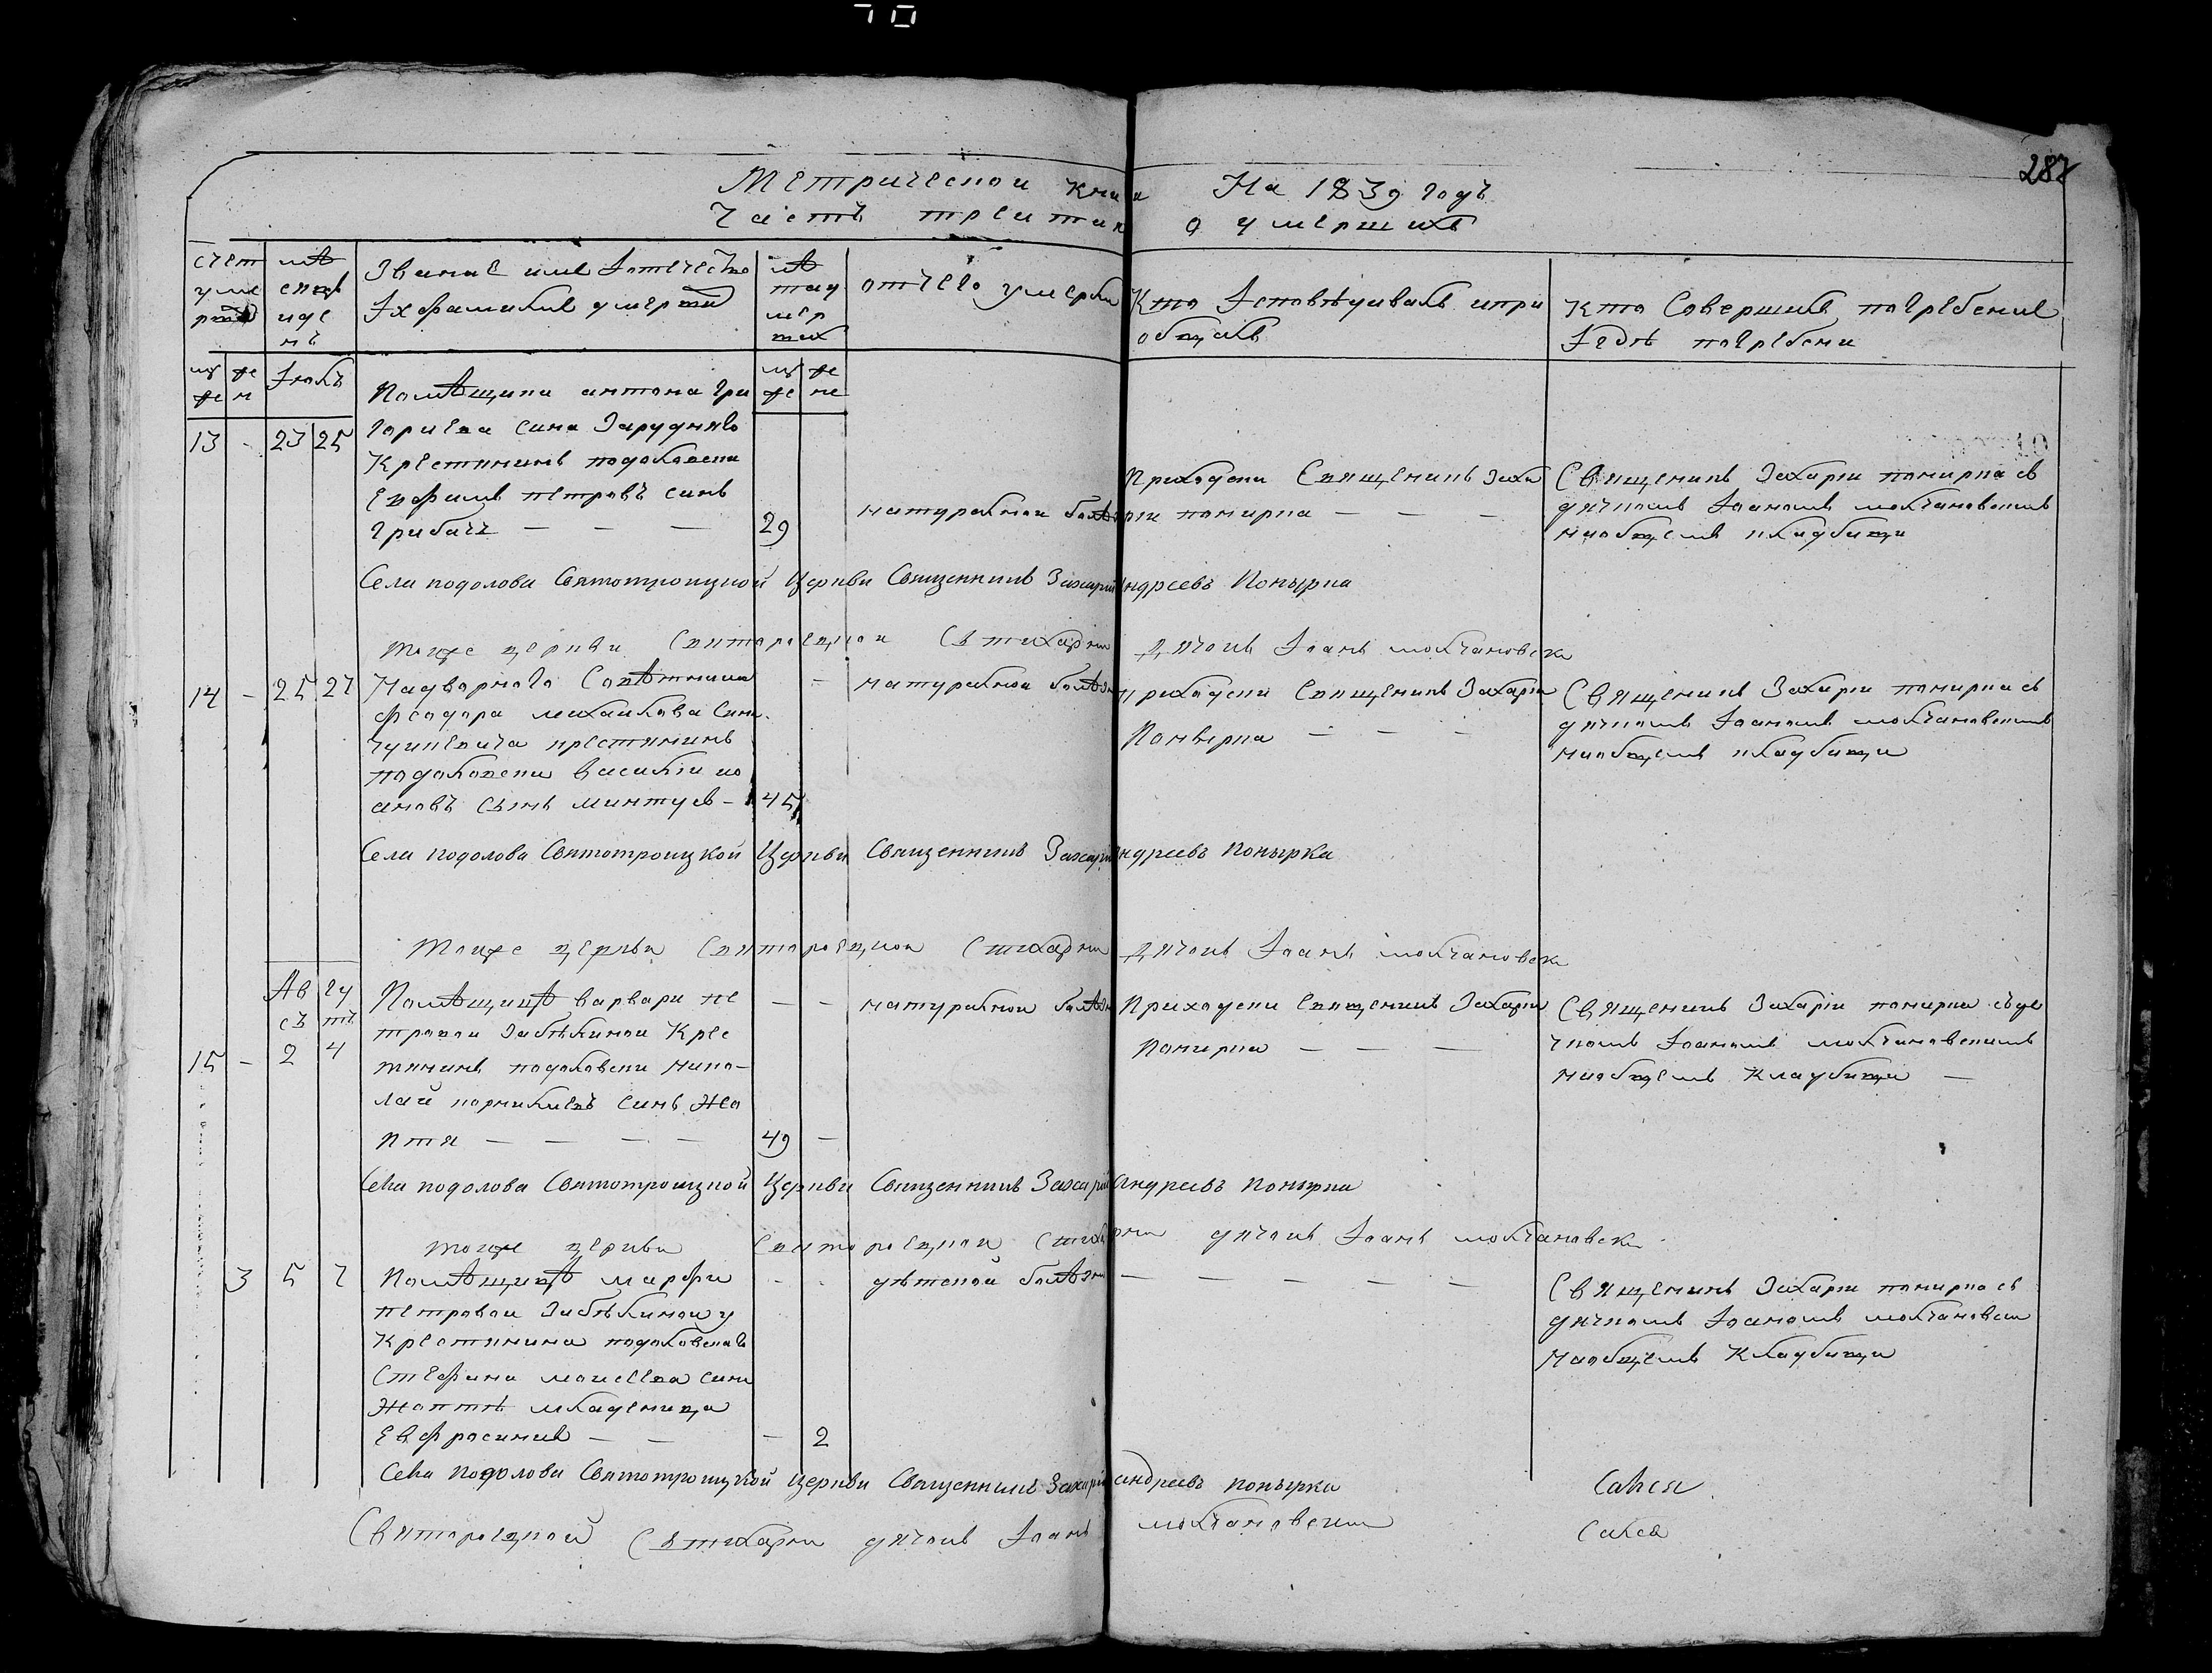 70
287
Метрической книги На 1839 годъ
Часть третия о умершихъ
счет уме ртв
мѣ сяцъ иде нь
Званіе имя Iотечество
Iхфамилия умерти
лѣ та у мер ших
отчего умерли
Кто Iсповѣдивалъ ипри
общалъ
Кто Совершилъ погребение
Iгдѣ погребени
му же
же н
Iюль
му же
же не
Помѣщика антона Гри
13 - 23 25 гориева сина Заруднаго
Крестянинъ подоловски
Евфимъ петровъ синъ
Грибачъ — — — 29
натуралной болѣз
Приходски Священикъ Заха
рги понирка — — —
Священикъ Захарги понирка съ
дячкомъ Iоаномъ молчановскимъ
наобщемъ кладбищи
Села подолова Святотроицкой Церкви Священникъ Захарій Андреевъ Понырка
тоиже церкви Святотроецкои Стихарни Дячокъ Iоанъ молчановски
14 - 25 27 Надворнаго Совѣтника
феодора михаилова сина
чуикевича крестянинъ
подоловски василги ио
ановъ сынъ минтусъ - 45
натуралнои болѣзн
приходски Священикъ Захарги
Понырка — — —
Священикъ Захарги понирка съ
дячкомъ Iоаномъ молчановскимъ
наобщемъ кладбищи
Села подолова Святотроицкой Церкви Священникъ Захарій Андреевъ Понырка
Тоиже церкви Святотроецкои Стихарни Дячокъ Iоанъ молчановски
Ав гу
съ тъ
15 - 2 4
Помѣщицѣ варвари пе
тровои Забѣлинои Крес
тянинъ подоловски нико-
лай корнилиевъ синъ Жо
втя — — — — 49 —
натуралнои болѣзн
Приходски Священикъ Захарги
Понирка — — —
Священикъ Захаргй понирка съдя
чкомъ Iоаномъ молчановскимъ
наобщемъ Кладбищи —
Села подолова Святотроицкой Церкви Священникъ Захарій Андреевъ Понырка
тоиже церкви Святотроецкои Стихарни дячокъ Iоанъ молчановски
3 5 7 Помѣщицѣ марфи
петровои Забѣлинои у
Крестянина подоловскаго
Стефана моисеева сина
Жовтѣ младеница
Евфросиния — — — 2
дѣтской болѣзни — — — — —
Священикъ Захарги понирка съ
дячкомъ Iоаномъ молчановски
Наобщемъ Кладбищи
Села подолова Святотроицкой Церкви Священникъ Захарій андреевъ понырка
Святотроецкой Стихарни дячокъ Iоанъ молчановски